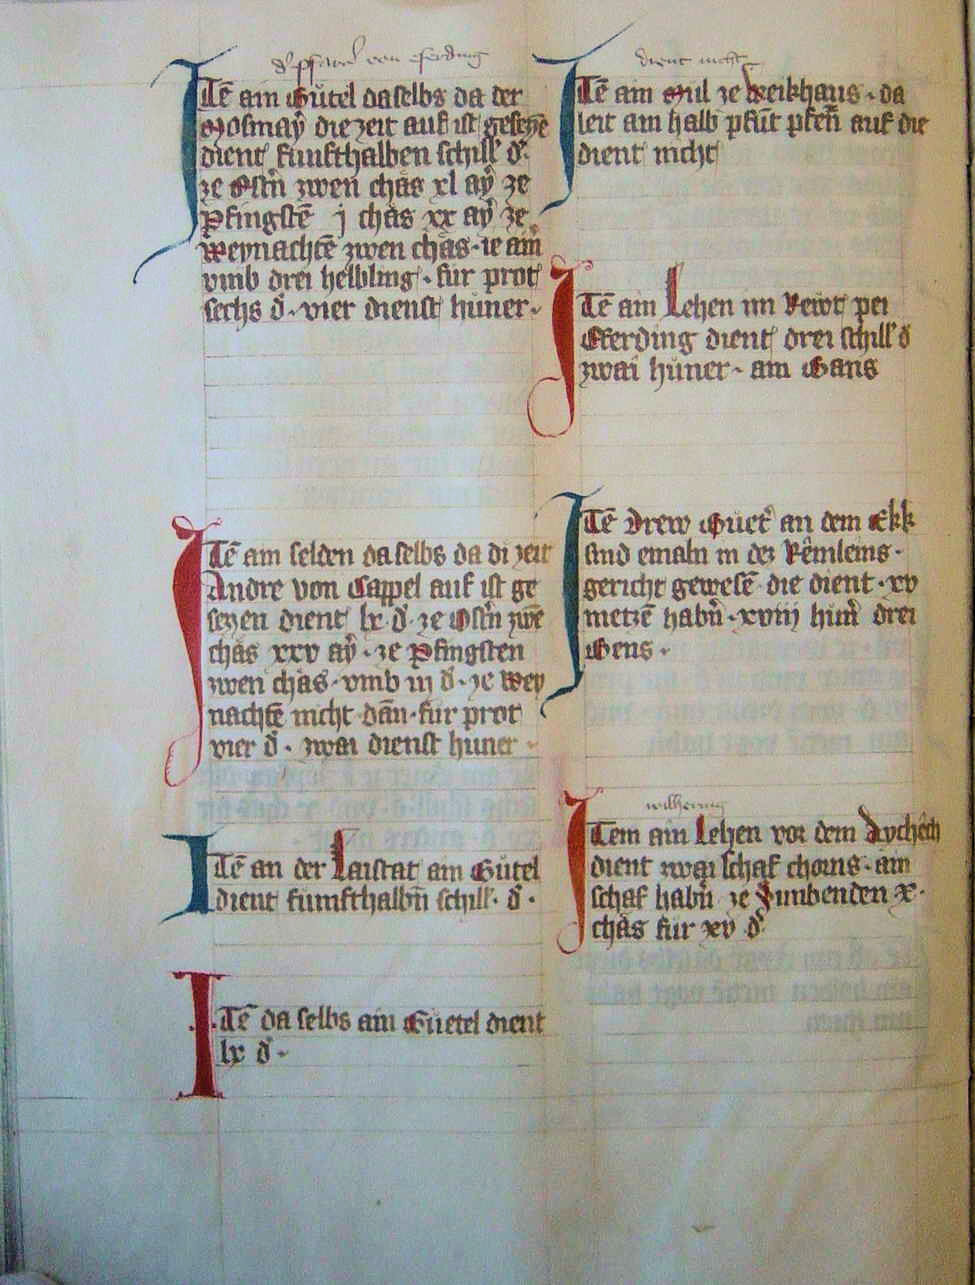 d' pfarrer von eferding
ITē ain Gůtel daselbs da der
Mosmaÿ die zeit auf ist gesezzē
dient funfthalben schill' d'
ze Ostn̄ zwen chäs xl aÿ ze
Pfingstē j chäs xx aÿ ze
Weynachtē zwen chäs · ie ain̄
vmb drei helbling · für prot
sechs d' · vier dienst hůner ·
ITē ain selden daselbs da di zeit
Andre von Cappel auf ist ge
sezzen dient lx d' · ze Ostn̄ zwē
chäs xxv aÿ · ze Pfingsten
zwen chäs · vmb iij d' · ze Wey
nachtē nicht dān · für prot
vier d' · zwai dienst hůner ·
ITē an der Laistat ain Gůtel
dient fumfthalbn̄ schill' · d' ·
ITē da selbs ain Gůetel dient
lx d' ·
dient nicht
ITē ain Mül ze Weikhaus · da
leit ain halb pfūt pfen̄ auf die
dient nicht
ITē ain Lehen im Rewt pei
Efferding dient drei schill' d'
zwai hůner · ain Gans
ITē Drew Gůet' an dem Ekk
sind emaln in des Rêmleins ·
gericht gewesē die dient · xv
metzē habn̄ · xviij hůn' drei
Gens ·
wilhering
ITem ain Lehen vor dem
dient zwai schaf chorns · ain
schaf habn̄ ze Sunbenden x ·
chäs für xv d'